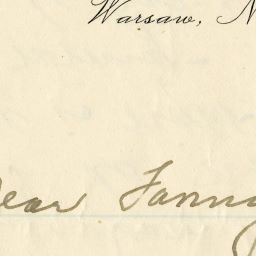 Warsaw, N
ear Fanny